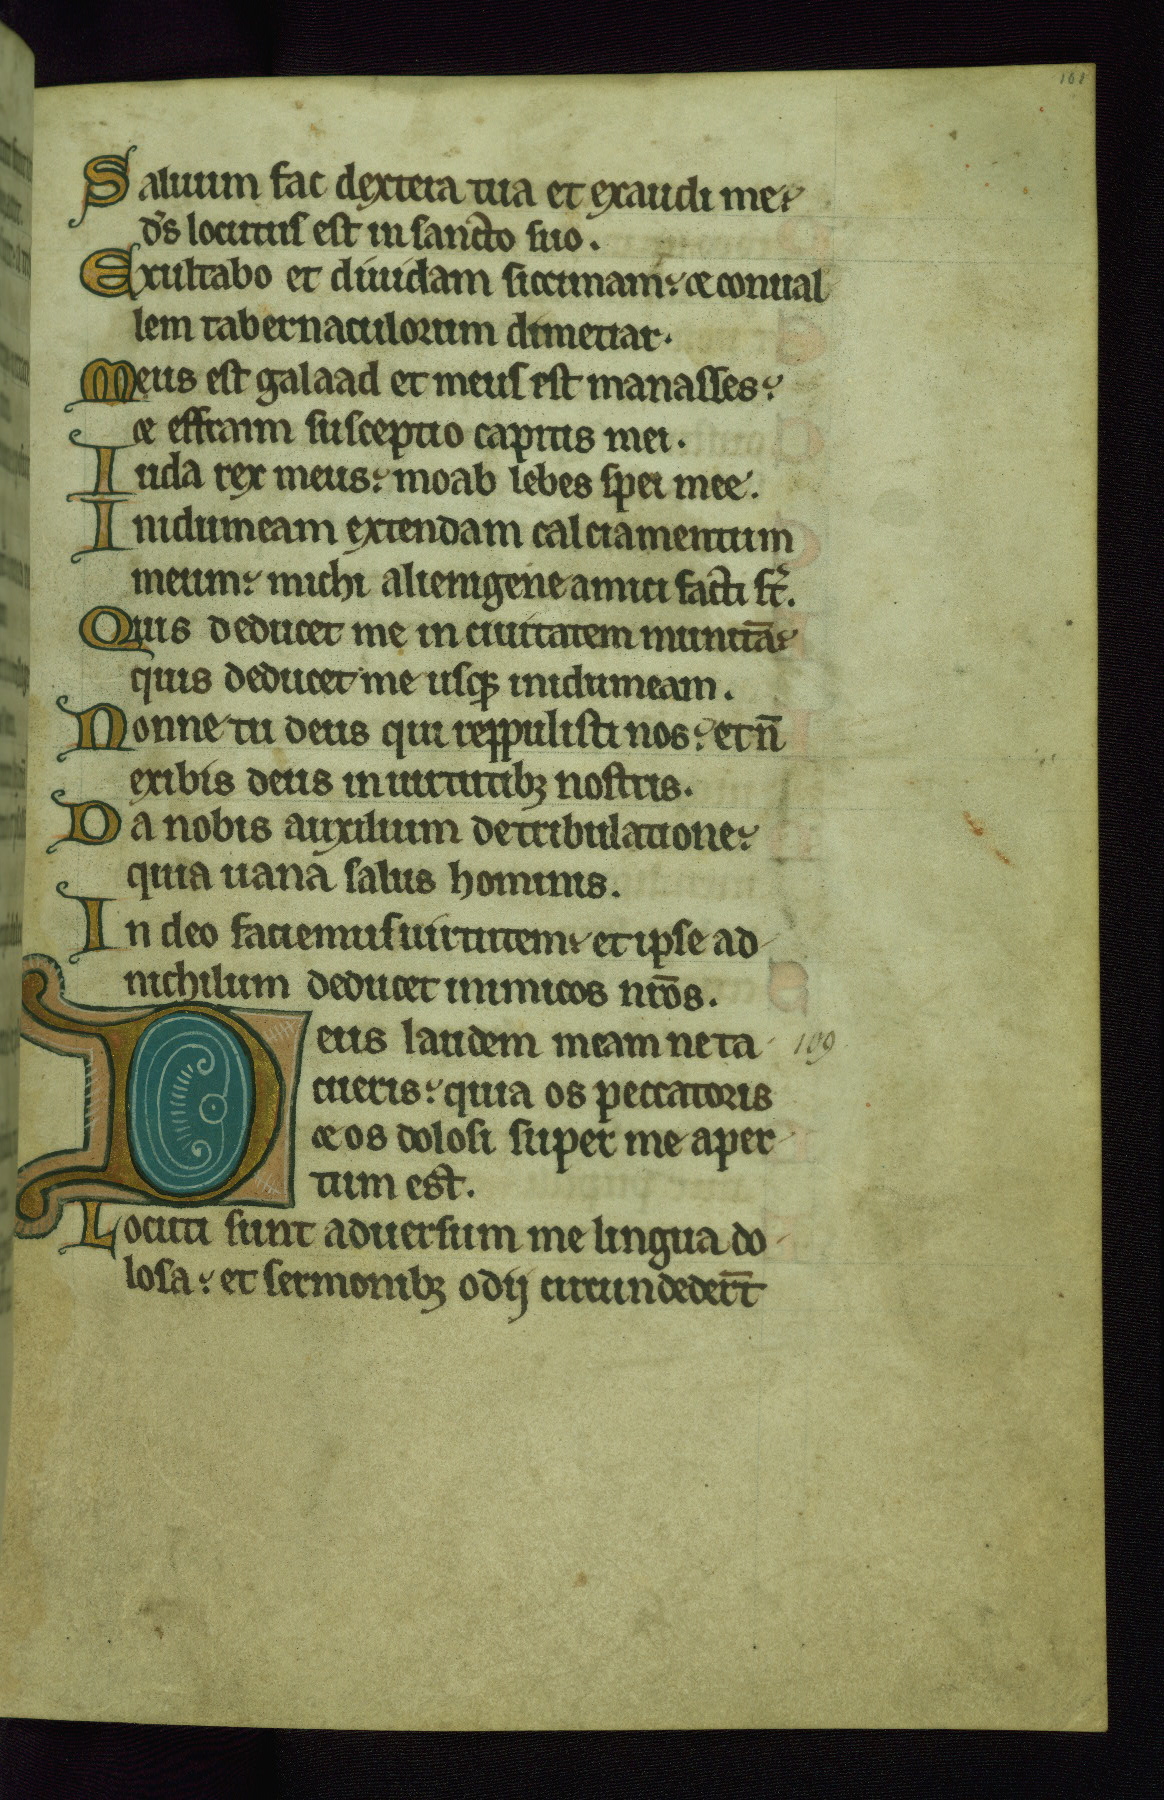 161
Saluum fac dextera tua et exaudi me⸵
ds̄ locutus est in sancto suo.
Exultabo et diuidam siccimam⸵ & conual
lem tabernaculorum dimetiar.
Meus est galaad et meus est manasses⸵
& effraim susceptio capitis mei.
Iuda rex meus⸵ moab lebes spei mee.
Inidumeam extendam calciamentum
meum⸵ michi alienigene amici facti st̄.
Quis deducet me in ciuitatem munitā⸵
quis deducet me usqꝫ inidumeam.
Nonne tu deus qui reppulisti nos⸵ et n̄
exibis deus in uirtutibꝫ nostris.
Da nobis auxilium de tribulatione⸵
quia uana salus hominis.
In deo faciemus uirtutem⸵ et ipse ad
nichilum deducet inimicos nrōs.
Deus laudem meam ne ta 109
cueris⸵ quia os peccatoris
& os dolosi super me aper
tum est.
Locuti sunt aduersum me lingua do
losa⸵ et sermonibꝫ odij circundeder̄t